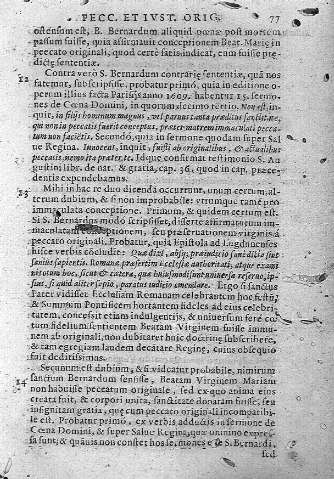 PECC. ET IVST. ORIG. 77
ostensum est, B. Bernardum aliquid pœnæ post mortem
passum fuisse, quia affirmauit conceptionem Beat. Marię in
peccato originali, quod certè satis indicat, eum fuisse præ-
dictę sententiæ.
22 Contra verò S. Bernardum contrariæ sententiæ, quã nos
fatemur, subscripsisse, probatur primò, quia in editione o-
perum illius facta Parisijs anno 1609. habentur 15. sermo-
nes de Cœna Domini, in quorum decimo tertio. Non est, in-
quit, in filijs hominum magnus, vel paruus tanta præditus sanctitate,
qui non in peccatis fuerit conceptus, præter matrem immaculati pecca-
tum non facientis. Secundò, quia in sermone quodam super Sal-
ue Regina. Innocens, inquit, fuisti ab originalibus, & actualibus
peccatis nemo ita præter te. Idque confirmat testimonio S. Au-
gustini libr. de nat. & gratia, cap. 36. quod in cap. præce-
denti expendebamus.
23 Mihi in hac re duo dicenda occurrunt, vnum certum, al-
terum dubium, & si non improbabile: vtrumque tamẽ pro
immaculata conceptione. Primum, & quidem certum est.
Si S. Bernardus modò scripsisset, disertè affirmaturum im-
maculatam conceptionem, seu præseruationem virginis à
peccato originali. Probatur, quia Epistola ad Lugdunenses
hisce verbis concludit: Quæ dixi, absque præiudicio sanè dicta sint
sanius sapientis. Romanæ præsertim Ecclesiæ authoritati, atque examini
totum hoc, sicut & cætera, quæ huiusmodi sunt, vniuersa reseruo, ip-
sius, si quid aliter sapio, paratus iudicio emendare. Ergo si sanctus
Pater vidisset Ecclesiam Romanam celebrantem hoc festũ,
& Summum Pontificem hortantem fideles ad eius celebri-
tatem, concessit etiam indulgentijs, & vniuersum ferè cœ-
tum fidelium sentientem Beatam Virginem fuisse immu-
nem ab originali, non dubitaret huic doctrinę subscribere,
& tam egregiam laudem decætare Reginę, cuius obsequio
fuit deditissimus.
24 Secundum est dubium, & si videatur probabile, nimirum
sanctum Bernardum sensisse, Beatam Virginem Mariam
non habuisse peccatum originale, sed ex quo anima eius
creata fuit, & corpori vnita, sanctitate donatam fuisse, seu
insignitam gratia, quę cum peccato originali incompatibi-
le est. Probatur primò, ex verbis adductis in sermone de
Cœna Domini, & super Salue Regina, quæ omnino expres-
sa sunt, & quãuis non constet hosce sermones esse S. Bernardi,
sed